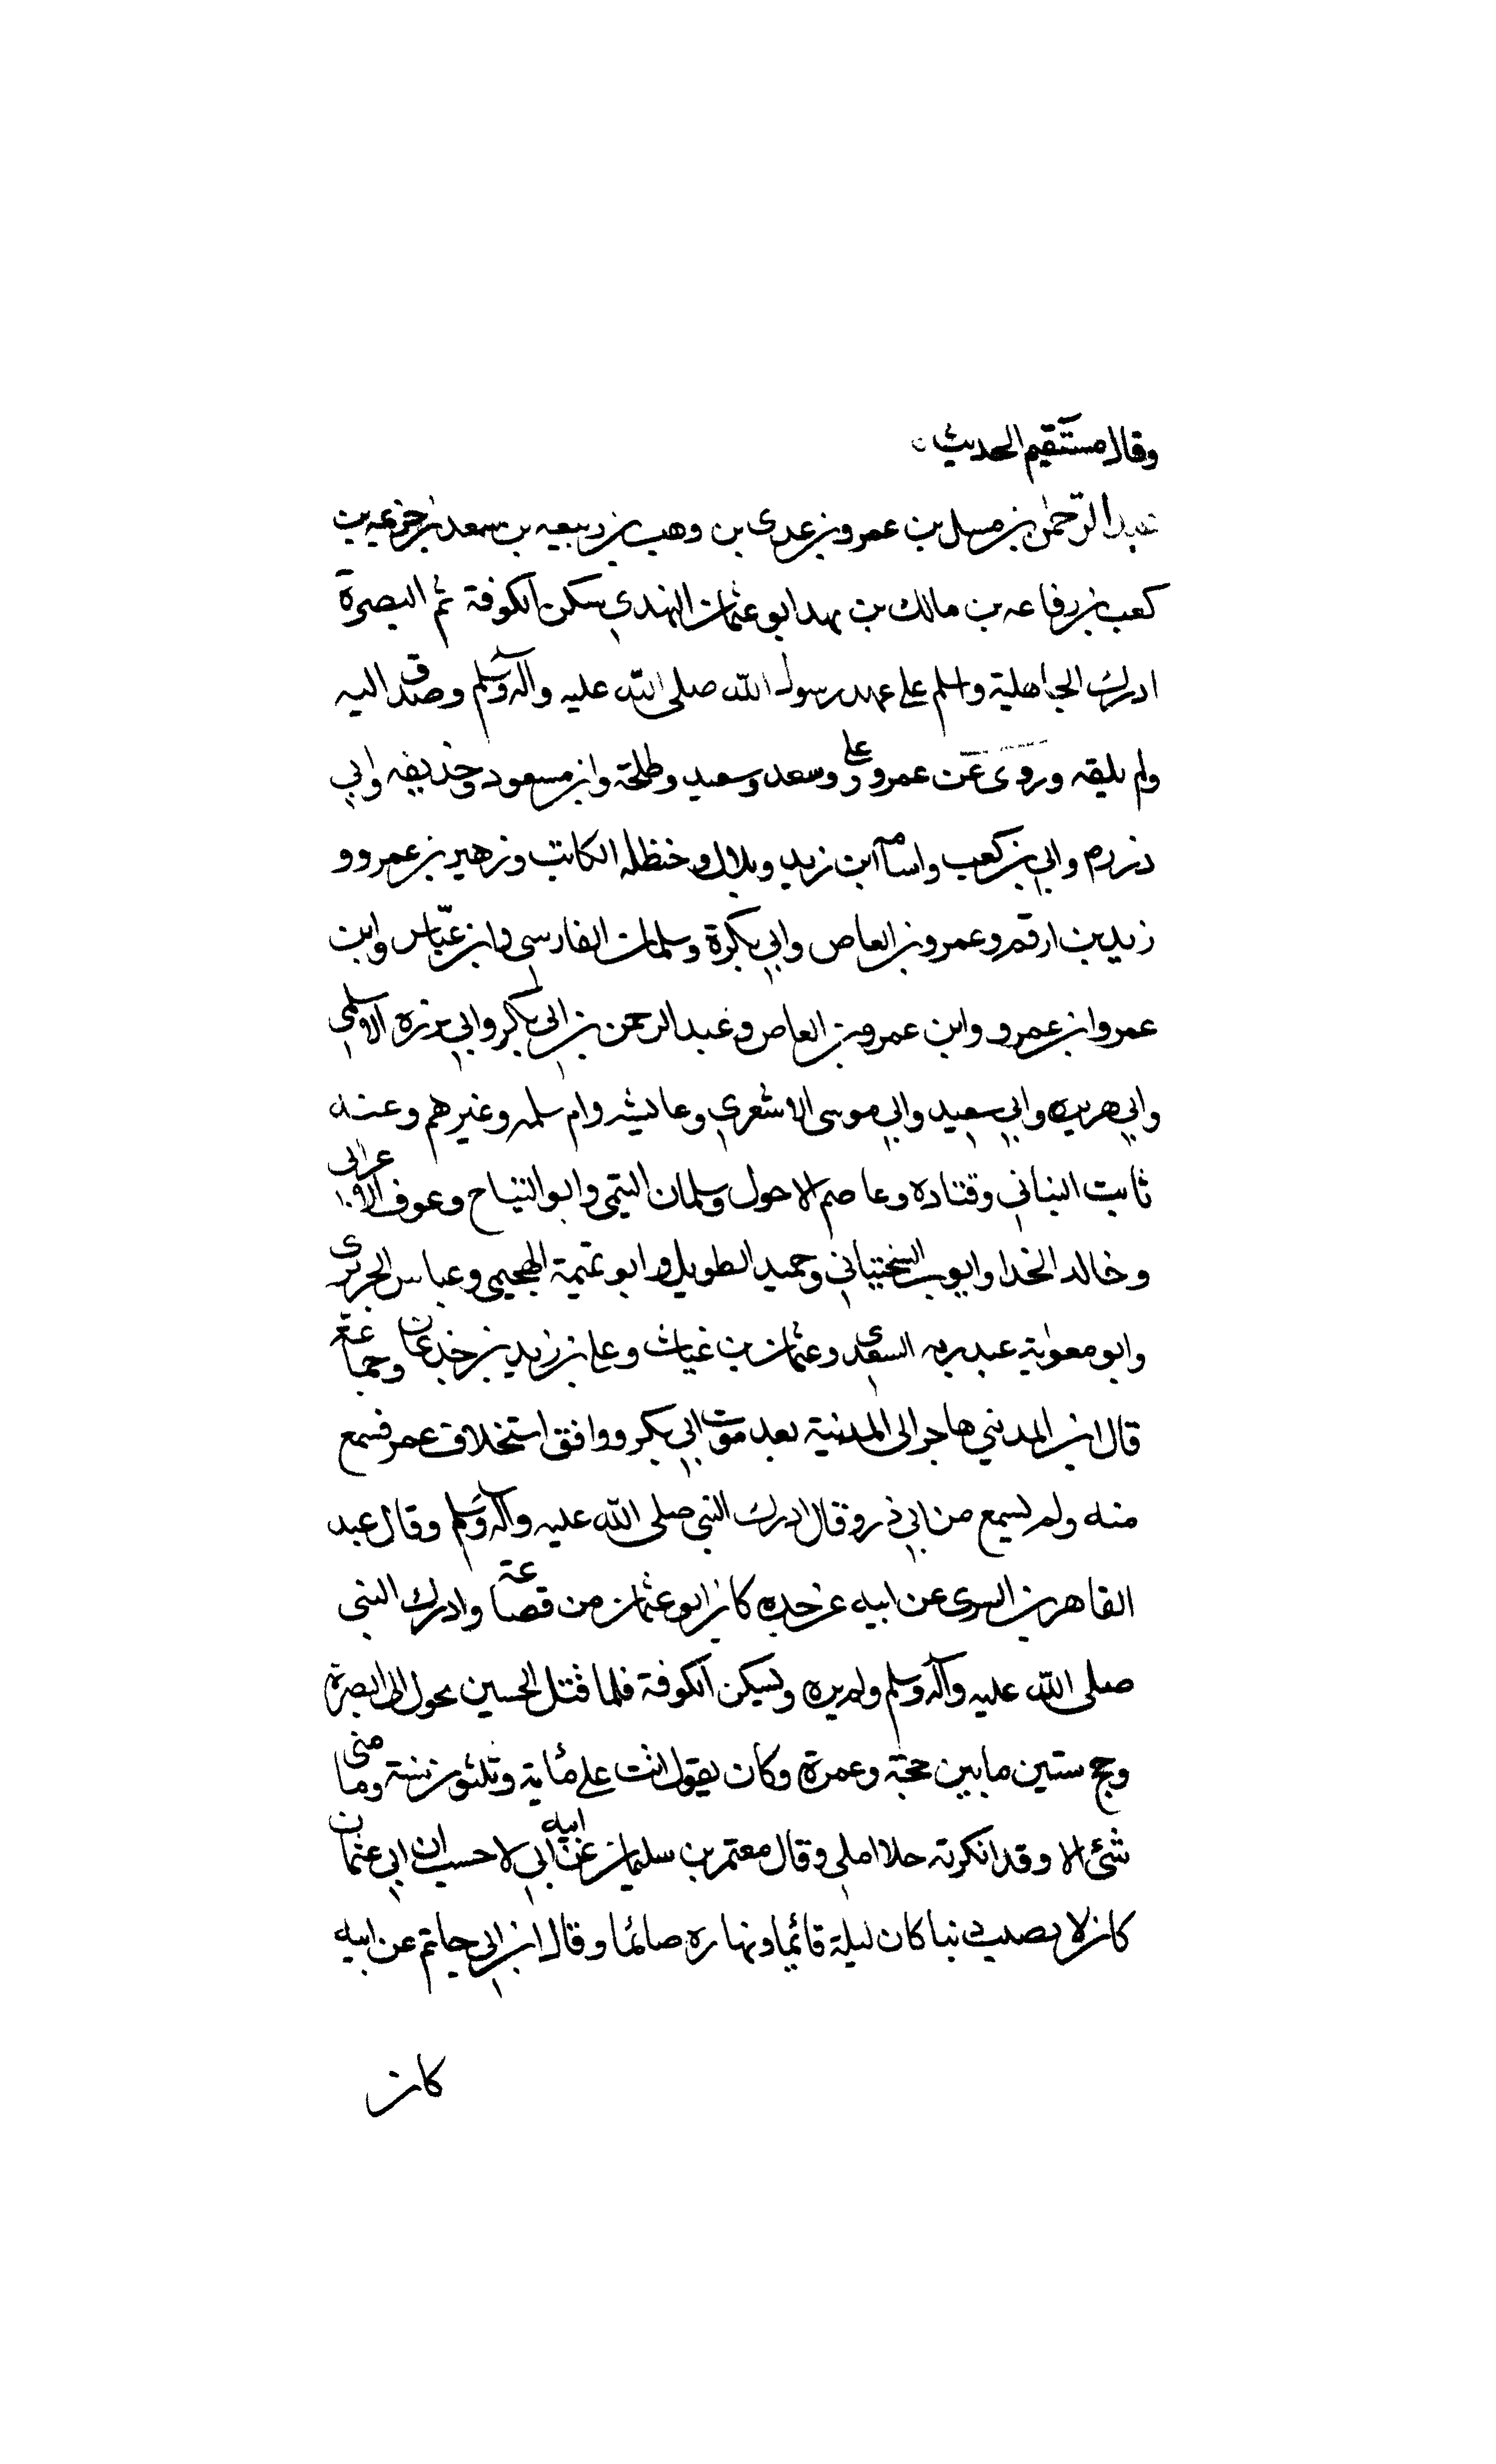 وقال مستقيم الحديث
عبد الرحمن بن مسل بن عمرو بن عدى بن وهب بن ربيعه بن سعد بن خزيمه بن
كعب بن رفاعه بن مالك بن نهد ابو عثمان النهدي سكن الكوفة ثم البصرة
ادرك الجاهلية واسلم على عهد رسول الله صلى الله عليه وآله وسلم وصدق اليه
ولم يلقه وروى عن عمرو وعلي وسعد وسعيد وطلحة وابن مسعود وحذيفه وابي
ذر وابي بن كعب واسامه ابن زيد وبلال وحنظله الكاتب وزهير بن عمرو و
زيد بن ارقم وعمرو بن العاص وابي بكرة وسلمان الفارسي وابن عباس وابن
عمر وابن عمرو وابن عمرو بن العاص وعبد الرحمن بن ابي بكر وابي برزه الاسلمي
وابي هريره وابي سعيد وابي موسى الاشعري وعايشه وام سلمه وغيرهم وعنه
ثابت البناني وقتاده وعاصم الاحول وسلمان التيمى وابو التياح وعوف الاعرابى
وخالد الخدا وايوب السختياني وحميد الطويل وابو تميمة الهجيمى وعباس الجريرى
وابو معوية عبد ربه السعدى وعثمان بن غياث وعلي بن زيد بن خدعان وجماعة
قال ابن المديني هاجر الى المدينة بعد موت ابي بكر ووافق استخلاف عمر فسمع
منه ولم يسمع من ابي ذر وقال ادرك النبي صلى الله عليه وآله وسلم وقال عبد
القاهر بن السرى عن ابيه عن جده كان ابو عثمان من قصاعة وادرك النبى
صلى الله عليه وآله وسلم ولم يره ويسكن الكوفة فلما قتل الحسين تحول الى البصرة
وحج ستين مابين حجة وعمرة وكان يقول اتت على مأية وثلثون سنة وما منى
شئ الا وقد انكرته خلا املي وقال معتمر بن سليمان عن ابيه اني لا حسب ان ابي عثمان
كان لا يصيب نبا كان ليلة قائما ونهاره صائما وقال ابن ابي حاتم عن ابيه
كان